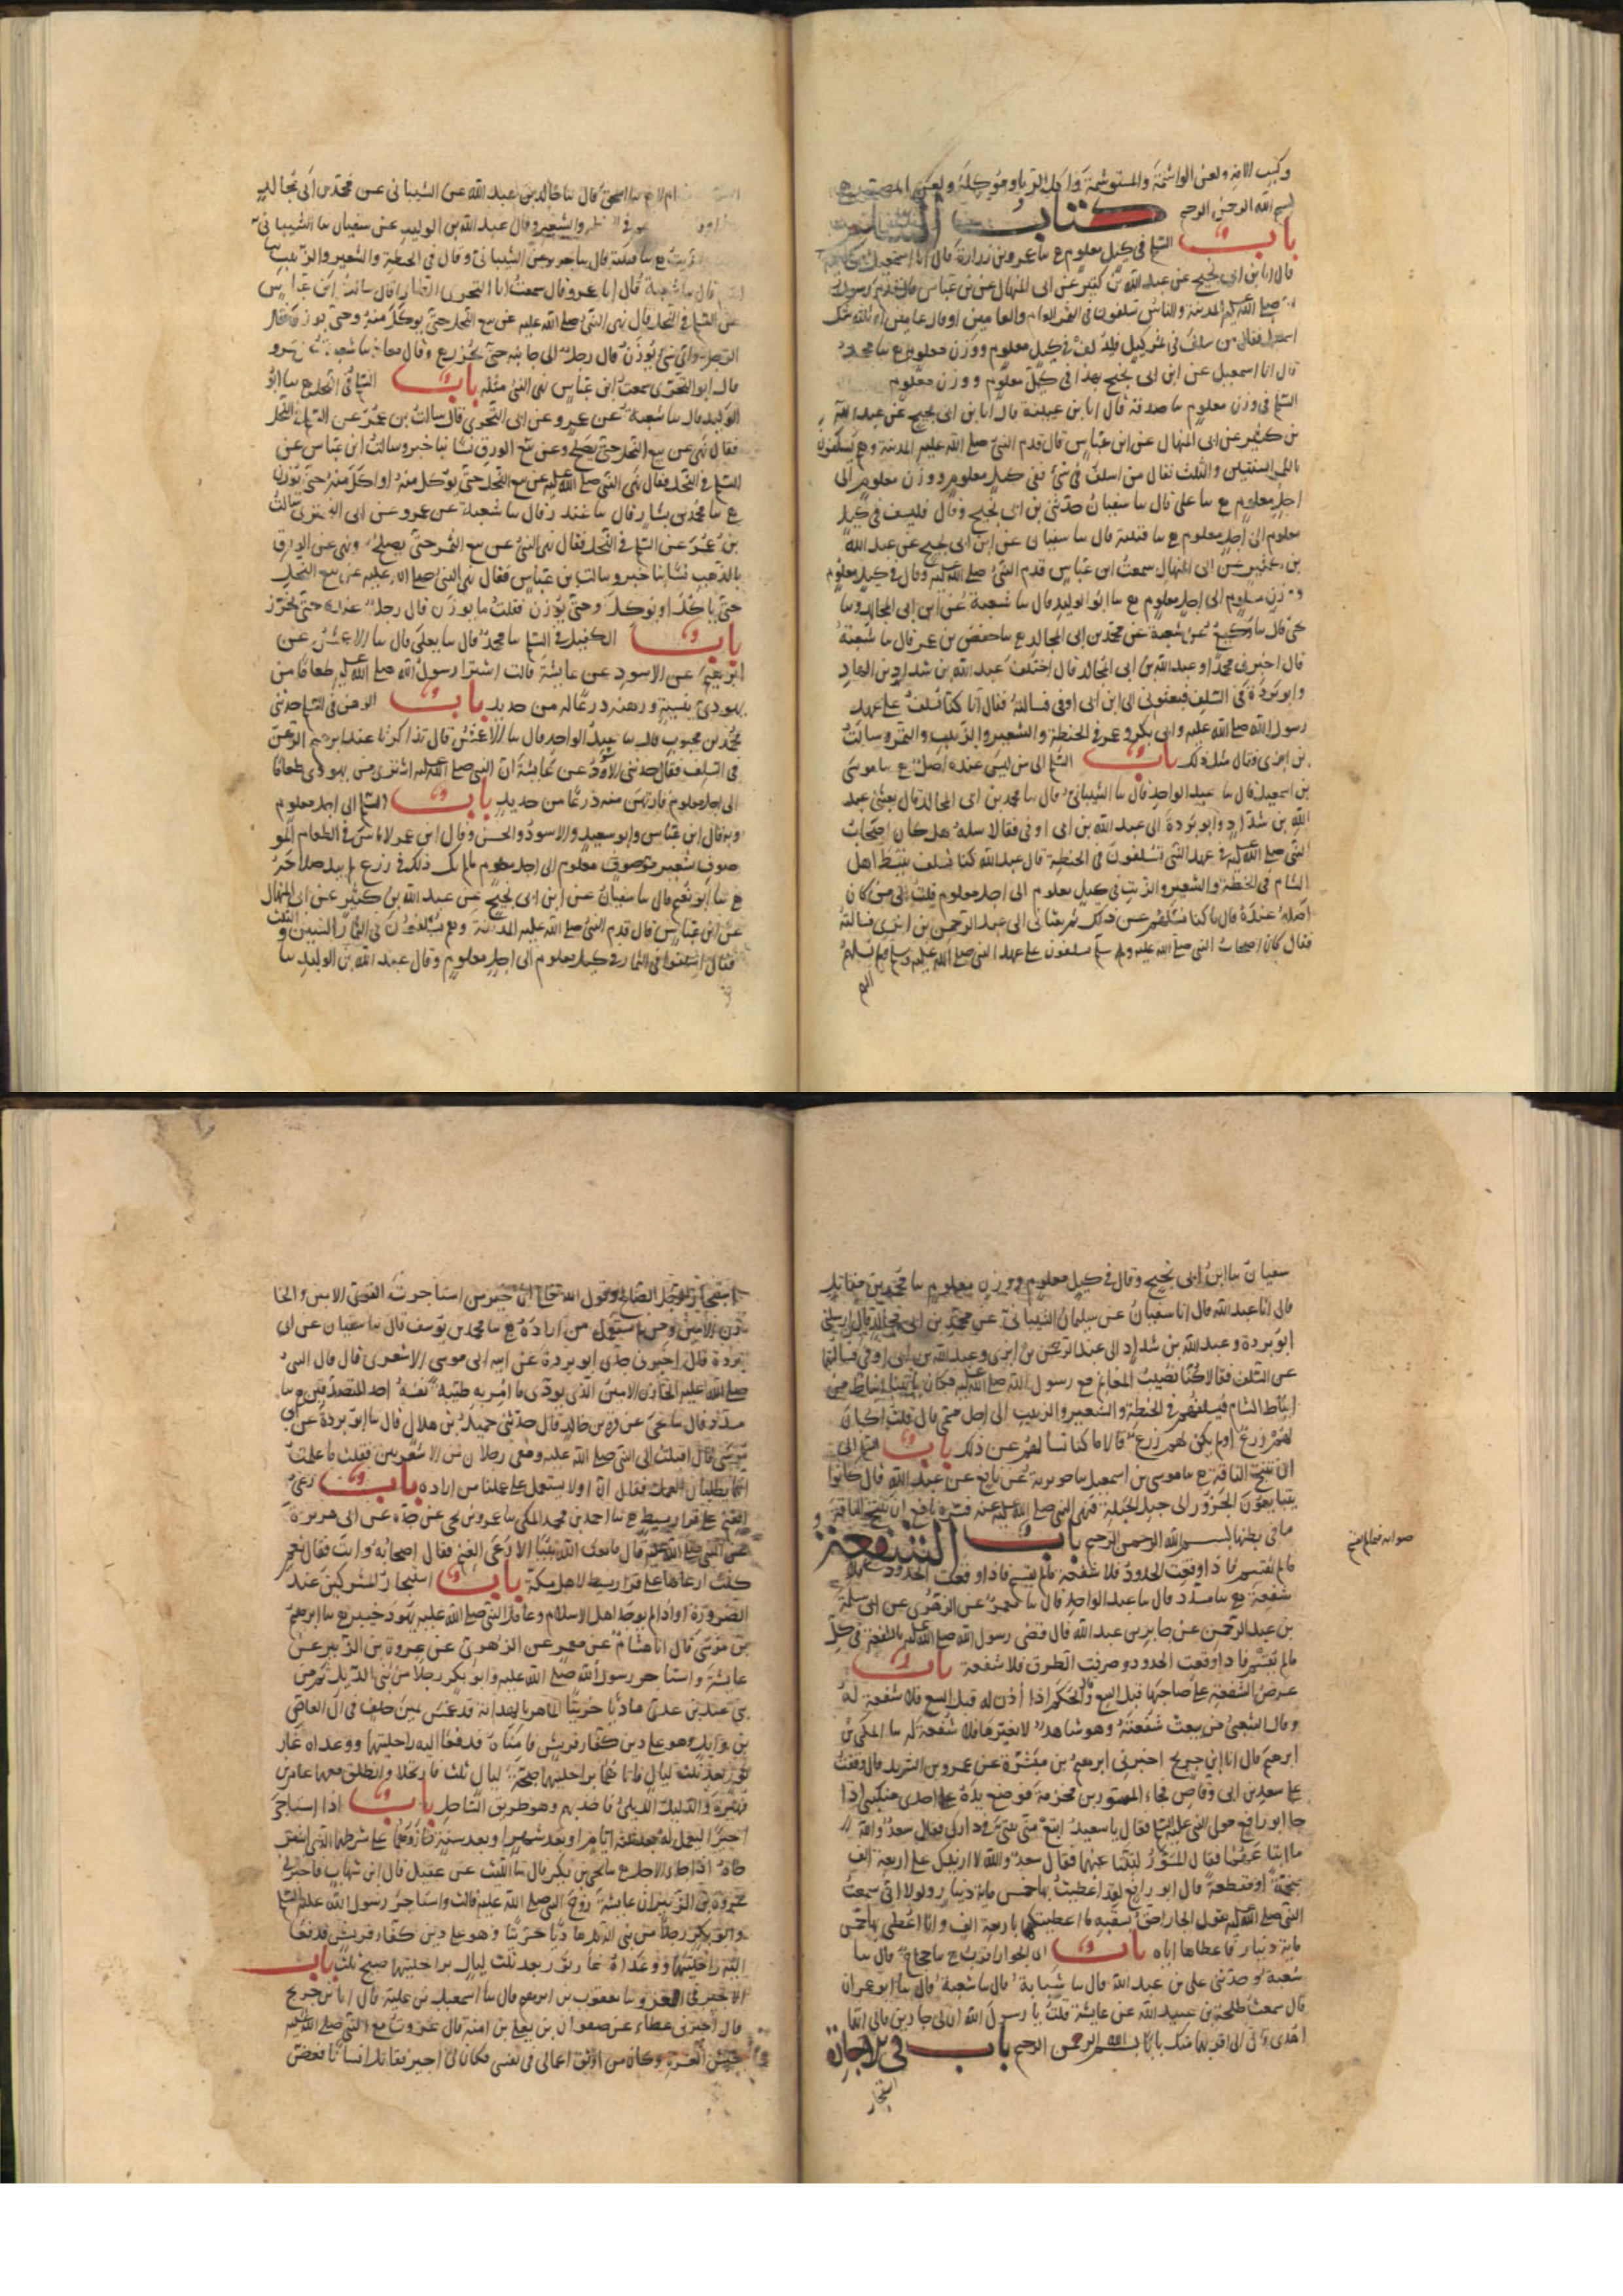 وكسب الامة ولعن الواشمة والمستوشمة وآكل الربا وموكله ولعن المصور
بسم الله الرحمن الرحيم كتاب السلم
باب السلم في كيل معلوم ع سا عمرو بن زرارة قال انا اسمعيل بن
قال انا بن ابي نجيح عن عبد الله بن كثير عن ابي المنهال عن بن عباس قال قدم رسول
الله صلى الله عليه المدينة والناس يسلفون في الثمر العام والعامين او قال عامين او ثلثة شك
اسمعيل فقال من سلف في تمر فليسلف في كيل معلوم ووزن معلوم ع سا محمد
قال انا اسمعيل عن ابن ابي نجيح بهذا في كيل معلوم ووزن معلوم
السلم في وزن معلوم سا صدقة قال انا بن عيينة قال انا بن ابي نجيح عن عبد الله
بن كثير عن ابي المنهال عن ابن عباس قال قدم النبي صلى الله عليه المدينة وهم يسلفون
بالتمر السنتين والثلث فقال من اسلف في شئ ففي كيل معلوم ووزن معلوم الى
اجل معلوم ع سا علي قال سا سفيان حدثني بن ابي نجيح وقال فليسلف في كيل
معلوم الى اجل معلوم ع سا قتيبة قال سا سفيان عن ابن ابي نجيح عن عبد الله
بن كثير عن ابي المنهال سمعت ابن عباس قدم النبي صلى الله عليه وقال في كيل معلوم
ووزن معلوم الى اجل معلوم ع سا ابو الوليد قال سا شعبة عن ابن ابي المجالد وسا
يحيى قال سا وكيع عن شعبة عن محمد بن ابي المجالد ع سا حفص بن عمر قال سا شعبة
قال اخبرني محمد او عبد الله بن ابي المجالد قال اختلف عبد الله بن شداد بن الهاد
وابو بردة في السلف فبعثوني الى ابن ابي اوفى فسالته فقال انا كنا نسلف على عهد
رسول الله صلى الله عليه وابي بكر وعمر في الحنطة والشعير والزبيب والتمر وسالت
بن ابزى فقال مثل ذلك باب السلم الى من ليس عنده اصل ع سا موسى
بن اسمعيل قال سا عبد الواحد قال سا الشيباني قال سا محمد بن ابي المجالد قال بعثني عبد
الله بن شداد وابو بردة الى عبد الله بن ابي اوفى فقالا سله هل كان اصحاب
النبي صلى الله عليه في عهد النبي يسلفون في الحنطة قال عبد الله كنا نسلف نبيط اهل
الشام في الحنطة والشعير والزيت في كيل معلوم الى اجل معلوم قلت الى من كان
اصله عنده قال ما كنا نسئلهم عن ذلك ثم بعثاني الى عبد الرحمن بن ابزى فسالته
فقال كان اصحاب النبي صلى الله عليه وسلم يسلفون على عهد النبي صلى الله عليه وسلم ولم نسلهم
الهم
سا اسحق قال سا خالد بن عبد الله عن الشيباني عن محمد بن ابي مجالد
والشعير وقال عبد الله بن الوليد عن سفيان سا الشيباني
والزيت ع سا قتيبة قال سا جرير عن الشيباني وقال في الحنطة والشعير والزبيب
قال سا شعبة قال انا عمرو قال سمعت ابا البختري الطائي قال سالت ابن عباس
عن السلم في النخل قال نهى النبي صلى الله عليه عن بيع النخل حتى يوكل منه وحتى يوزن فقال
الرجل واي شئ يوزن قال رجل الى جانبه حتى يحرز ع وقال معاذ سا شعبة عن عمرو
قال ابو البختري سمعت ابن عباس نهى النبي مثله باب السلم في النخل ع سا ابو
الوليد قال سا شعبة عن عمرو عن ابي البختري قال سالت بن عمر عن السلم في النخل
فقال نهي عن بيع النخل حتى يصلح وعن بيع الورق نساء بناجز وسالت ابن عباس عن
السلم في النخل فقال نهى النبي صلى الله عليه عن بيع النخل حتى يوكل منه او ياكل منه حتى يوزن
ع سا محمد بن بشار قال سا غندر قال سا شعبة عن عمرو عن ابي البختري سالت
بن عمر عن السلم في النخل فقال نهى النبي عن بيع الثمر حتى يصلح ونهى عن الورق
بالذهب نساء بناجز وسالت ابن عباس فقال نهى النبي صلى الله عليه عن بيع النخل
حتى ياكل او يوكل وحتى يوزن قلت ما يوزن قال رجل عنده حتى يحرز
باب الكفيل في السلم سا محمد قال سا يعلى قال سا الاعمش عن
ابرهيم عن الاسود عن عايشة قالت اشترا رسول الله صلى الله عليه طعاما من
يهودي بنسيئة ورهنه درعا له من حديد باب الرهن في السلم حدثني
محمد بن محبوب قال سا عبد الواحد قال سا الاعمش قال تذاكرنا عند ابرهيم الرهن
في السلف فقال حدثني الاسود عن عايشة ان النبي صلى الله عليه اشترى من يهودي طعاما
الى اجل معلوم فارتهن منه درعا من حديد باب السلم الى اجل معلوم
وبه قال ابن عباس وابو سعيد والاسود والحسن وقال ابن عمر لا باس في الطعام المو
صوف بسعر موصوف معلوم الى اجل معلوم ما لم يك ذلك في زرع لم يبد صلاحه
ع سا ابو نعيم قال سا سفيان عن ابن ابي نجيح عن عبد الله بن كثير عن ابي المنهال
عن ابن عباس قال قدم النبي صلى الله عليه المدينة وهم يسلفون في الثمار السنتين والثلث
فقال اسلفوا في الثمار في كيل معلوم الى اجل معلوم وقال عبد الله بن الوليد سا
سفيان سا ابن ابي نجيح وقال في كيل معلوم ووزن معلوم سا محمد بن مقاتل
قال انا عبد الله قال انا سفيان عن سليمان الشيباني عن محمد بن ابي مجالد قال ارسلني
ابو بردة وعبد الله بن شداد الى عبد الرحمن بن ابزى وعبد الله بن ابي اوفى فسالتهما
عن السلف فقالا كنا نصيب المغانم مع رسول الله صلى الله عليه فكان ياتينا انباط من
انباط الشام فنسلفهم في الحنطة والشعير والزبيب الى اجل مسمى قال قلت اكان
لهم زرع او لم يكن لهم زرع قالا ما كنا نسالهم عن ذلك باب السلم الى
ان تنتج الناقة ع سا موسى بن اسمعيل سا جويرية عن نافع عن عبد الله قال كانوا
يتبايعون الجزور الى حبل الحبلة فنهى النبي صلى الله عليه عنه فسره نافع ان تنتج الناقة
ما في بطنها بسم الله الرحمن الرحيم باب الشفعة
مالم يقسم فاذا وقعت الحدود فلا شفعة
شفعة ع سا مسدد قال سا عبد الواحد قال سا معمر عن الزهري عن ابي سلمة
بن عبد الرحمن عن جابر بن عبد الله قال قضى رسول الله صلى الله عليه بالشفعة في كل
مالم يقسم فاذا وقعت الحدود وصرفت الطرق فلا شفعة باب
عرض الشفعة على صاحبها قبل البيع وقال الحكم اذا اذن له قبل البيع فلا شفعة له
وقال الشعبي من بيعت شفعته وهو شاهد لا يغيرها فلا شفعة له سا المكي بن
ابرهيم قال انا ابن جريج اخبرني ابرهيم بن ميسرة عن عمرو بن الشريد قال وقفت
على سعد بن ابي وقاص فجاء المسور بن مخرمة فوضع يده على احدى منكبي اذا
جا ابو رافع مولى النبي عليه السلم فقال يا سعد ابتع مني بيتي في دارك فقال سعد والله
ما ابتاعهما فقال المسور لتبتاعنهما فقال سعد والله لا ازيدك على اربعة الف
منجمة او مقطعة قال ابو رافع لقد اعطيت بها خمس ماية دينار ولولا اني سمعت
النبي صلى الله عليه يقول الجار احق بسقبه ما اعطيتكها باربعة الف وانا اعطى بها خمس
ماية دينار فاعطاها اياه باب اي الجوار اقرب ع سا حجاج قال سا
شعبة وحدثني علي بن عبد الله قال سا شبابة قال سا شعبة قال سا ابو عمران
قال سمعت طلحة بن عبد الله عن عايشة قلت يا رسول الله ان لي جارين فالى ايهما
اهدي قال الى اقربهما منك بابا بسم الله الرحمن الرحيم باب في الاجارة
استيجار
استيجار الرجل الصالح وقول الله تعالى ان خير من استاجرت القوي الامين والخا
زن الامين ومن لم يستعمل من اراده ع سا محمد بن يوسف قال سا سفيان عن ابي
بردة قال اخبرني جدي ابو بردة عن ابيه ابي موسى الاشعري قال قال النبي
صلى الله عليه الخازن الامين الذي يودي ما امر به طيبة نفسه احد المتصدقين ع سا
مسدد قال سا يحيى عن قرة بن خالد قال حدثني حميد بن هلال قال سا ابو بردة عن ابي
موسى قال اقبلت الى النبي صلى الله عليه ومعي رجلان من الاشعريين فقلت ما علمت
انهما يطلبان العمل فقال انا او لا نستعمل على عملنا من اراده باب رعي
الغنم على قراريط ع سا احمد بن محمد المكي سا عمرو بن يحيى عن جده عن ابي هريرة
عن النبي صلى الله عليه قال ما بعث الله نبيا الا رعى الغنم فقال اصحابه وانت فقال نعم
كنت ارعاها على قراريط لاهل مكة باب استيجار المشركين عند
الضرورة او اذا لم يوجد اهل الاسلام وعامل النبي صلى الله عليه يهود خيبر ع سا ابرهيم
بن موسى قال انا هشام عن معمر عن الزهري عن عروة بن الزبير عن
عايشة واستاجر رسول الله صلى الله عليه وابو بكر رجلا من بني الديل ثم من
بني عبد بن عدي هاديا خريتا الماهر بالهداية قد غمس يمين حلف في ال العاصي
بن وايل وهو على دين كفار قريش فامناه فدفعا اليه راحلتيهما ووعداه غار
ثور بعد ثلث ليال فاتاهما براحلتيهما صبيحة ليال ثلث فارتحلا وانطلق معهما عامر بن
فهيرة والدليل الديلي فاخذ بهم وهو طريق الساحل باب اذا استاجر
اجيرا ليعمل له بعد ثلثة ايام او بعد شهر او بعد سنة جاز وهما على شرطهما الذي اشترطاه
اذا جا الاجل ع سا يحيى بن بكير قال سا الليث عن عقيل قال ابن شهاب فاخبرني
عروة بن الزبير ان عايشة زوج النبي صلى الله عليه قالت واستاجر رسول الله عليه السلم
وابو بكر رجلا من بني الديل هاديا خريتا وهو على دين كفار قريش فدفعا
اليه راحلتيهما ووعداه غار ثور بعد ثلث ليال براحلتيهما صبح ثلث باب
الاجير في الغزو سا يعقوب بن ابرهيم قال سا اسمعيل بن علية قال انا بن جريج
قال اخبرني عطاء عن صفوان بن يعلى بن امية قال غزوت مع النبي صلى الله عليه
جيش العسرة وكان من اوثق اعمالي في نفسي فكان لي اجير فقاتل انسانا فعض